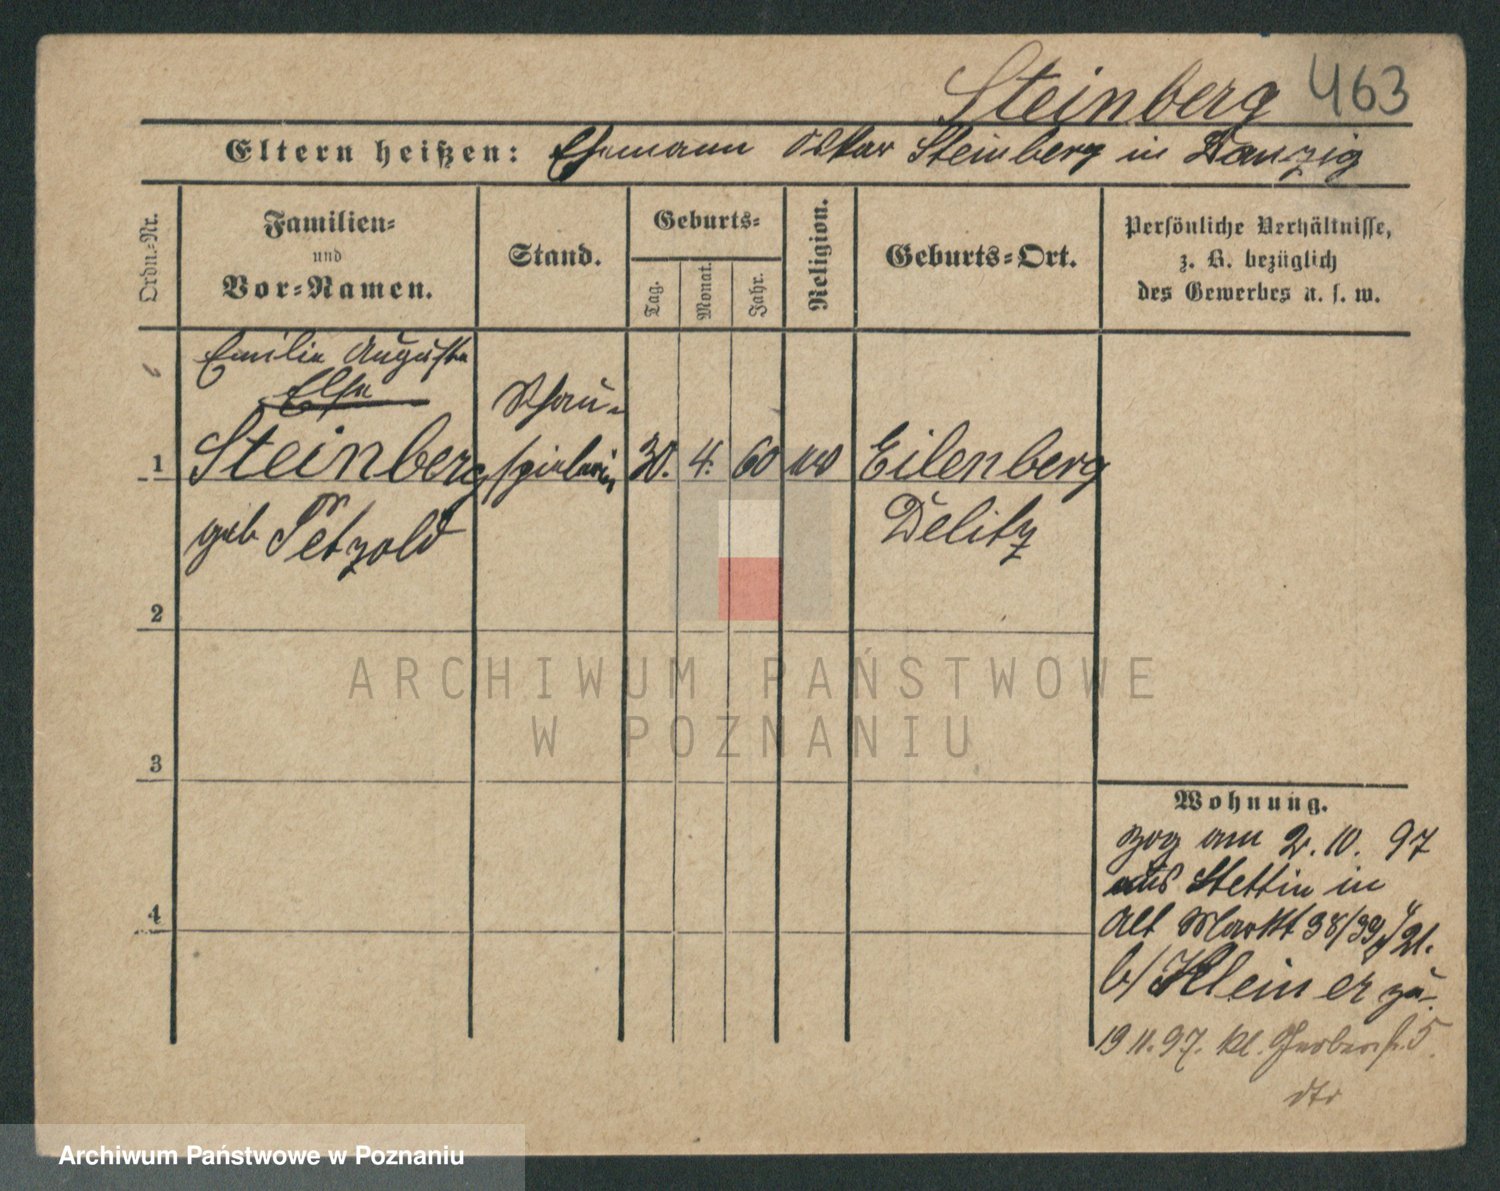 Steinberg 463
Eltern heißen: Ehemann Oskar Steinberg in Danzig
Ordn.=Nr.
Familien=
und
Vor=Namen.
Stand.
Geburts=
Tag.
Monat.
Jahr.
Religion.
Geburts=Ort.
Persönliche Verhältnisse,
z. B. bezüglich
des Gewerbes u. s. w.
Emilie Auguste
Else
Schau-
1 Steinberg spielerin 30. 4. 60 Eilenberg
geb Petzold Delitz
2
ARCHIWUM PAŃSTWOWE
W POZNANIU
3
4
Wohnung.
zog am 2. 10. 97
aus Stettin in
Alt Markt 38/39
b/ Kleiner zu.
19 11. 97. kl. Gerberstr. 5
Archiwum Państwowe w Poznaniu